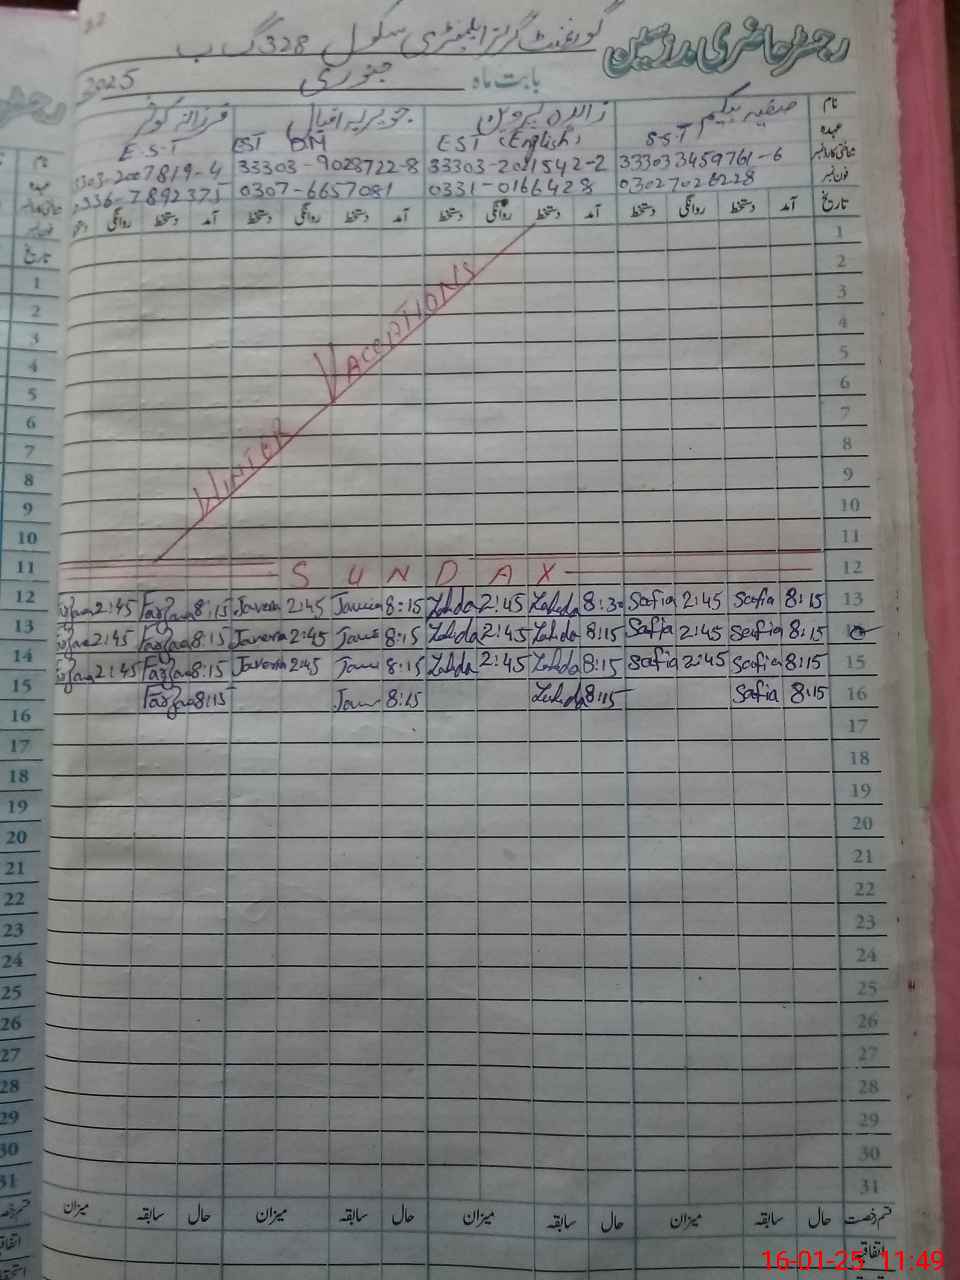 رجسٹر حاضری مدرسین
گورنمنٹ گرلز ایلیمنٹری سکول 328 گ ب
بابت ماہ جنوری 2025
نام صفیہ بیگم زاہدہ پروین جویریہ اقبال فرزانہ کوثر
عہدہ S.S.T EST (English) EST E.S.T
شناختی کارڈ نمبر 333033459761-6 33303-2021542-2 33303-9028722-8 3303-2007819-4
فون نمبر 03027026228 0331-0166428 0307-6657081 336-7892375
تاریخ آمد دستخط روانگی دستخط آمد دستخط روانگی دستخط آمد دستخط روانگی دستخط آمد دستخط روانگی
1
2
3
4
5
6
7
8
9
10
11
WINTER VACCATIONS
12 SUNDAY
13 8:15 Safia 2:45 Safia 8:30 Zahida 2:45 Zahida 8:15 Javeria 2:45 Javeria 8:15 Farzana 2:45
8:15 Safia 2:45 Safia 8:15 Zahida 2:45 Zahida 8:15 2:45 Javeria 8:15 Farzana 2:45
15 8:15 Safia 2:45 Safia 8:15 Zahida 2:45 Zahida 8:15 2:45 Javeria 8:15 Farzana 2:45
16 8:15 Safia 8:15 Zahida 8:15 8:15 Farzana
17
18
19
20
21
22
23
24
25
26
27
28
29
30
31
قسم رخصت حال سابقہ میزان حال سابقہ میزان حال سابقہ میزان حال سابقہ میزان
اتفاقی
16-01-25 11:49
نام
عہدہ
تاریخ
1
2
3
4
5
6
7
8
9
10
11
12
13
14
15
16
17
18
19
20
21
22
23
24
25
26
27
28
29
30
31